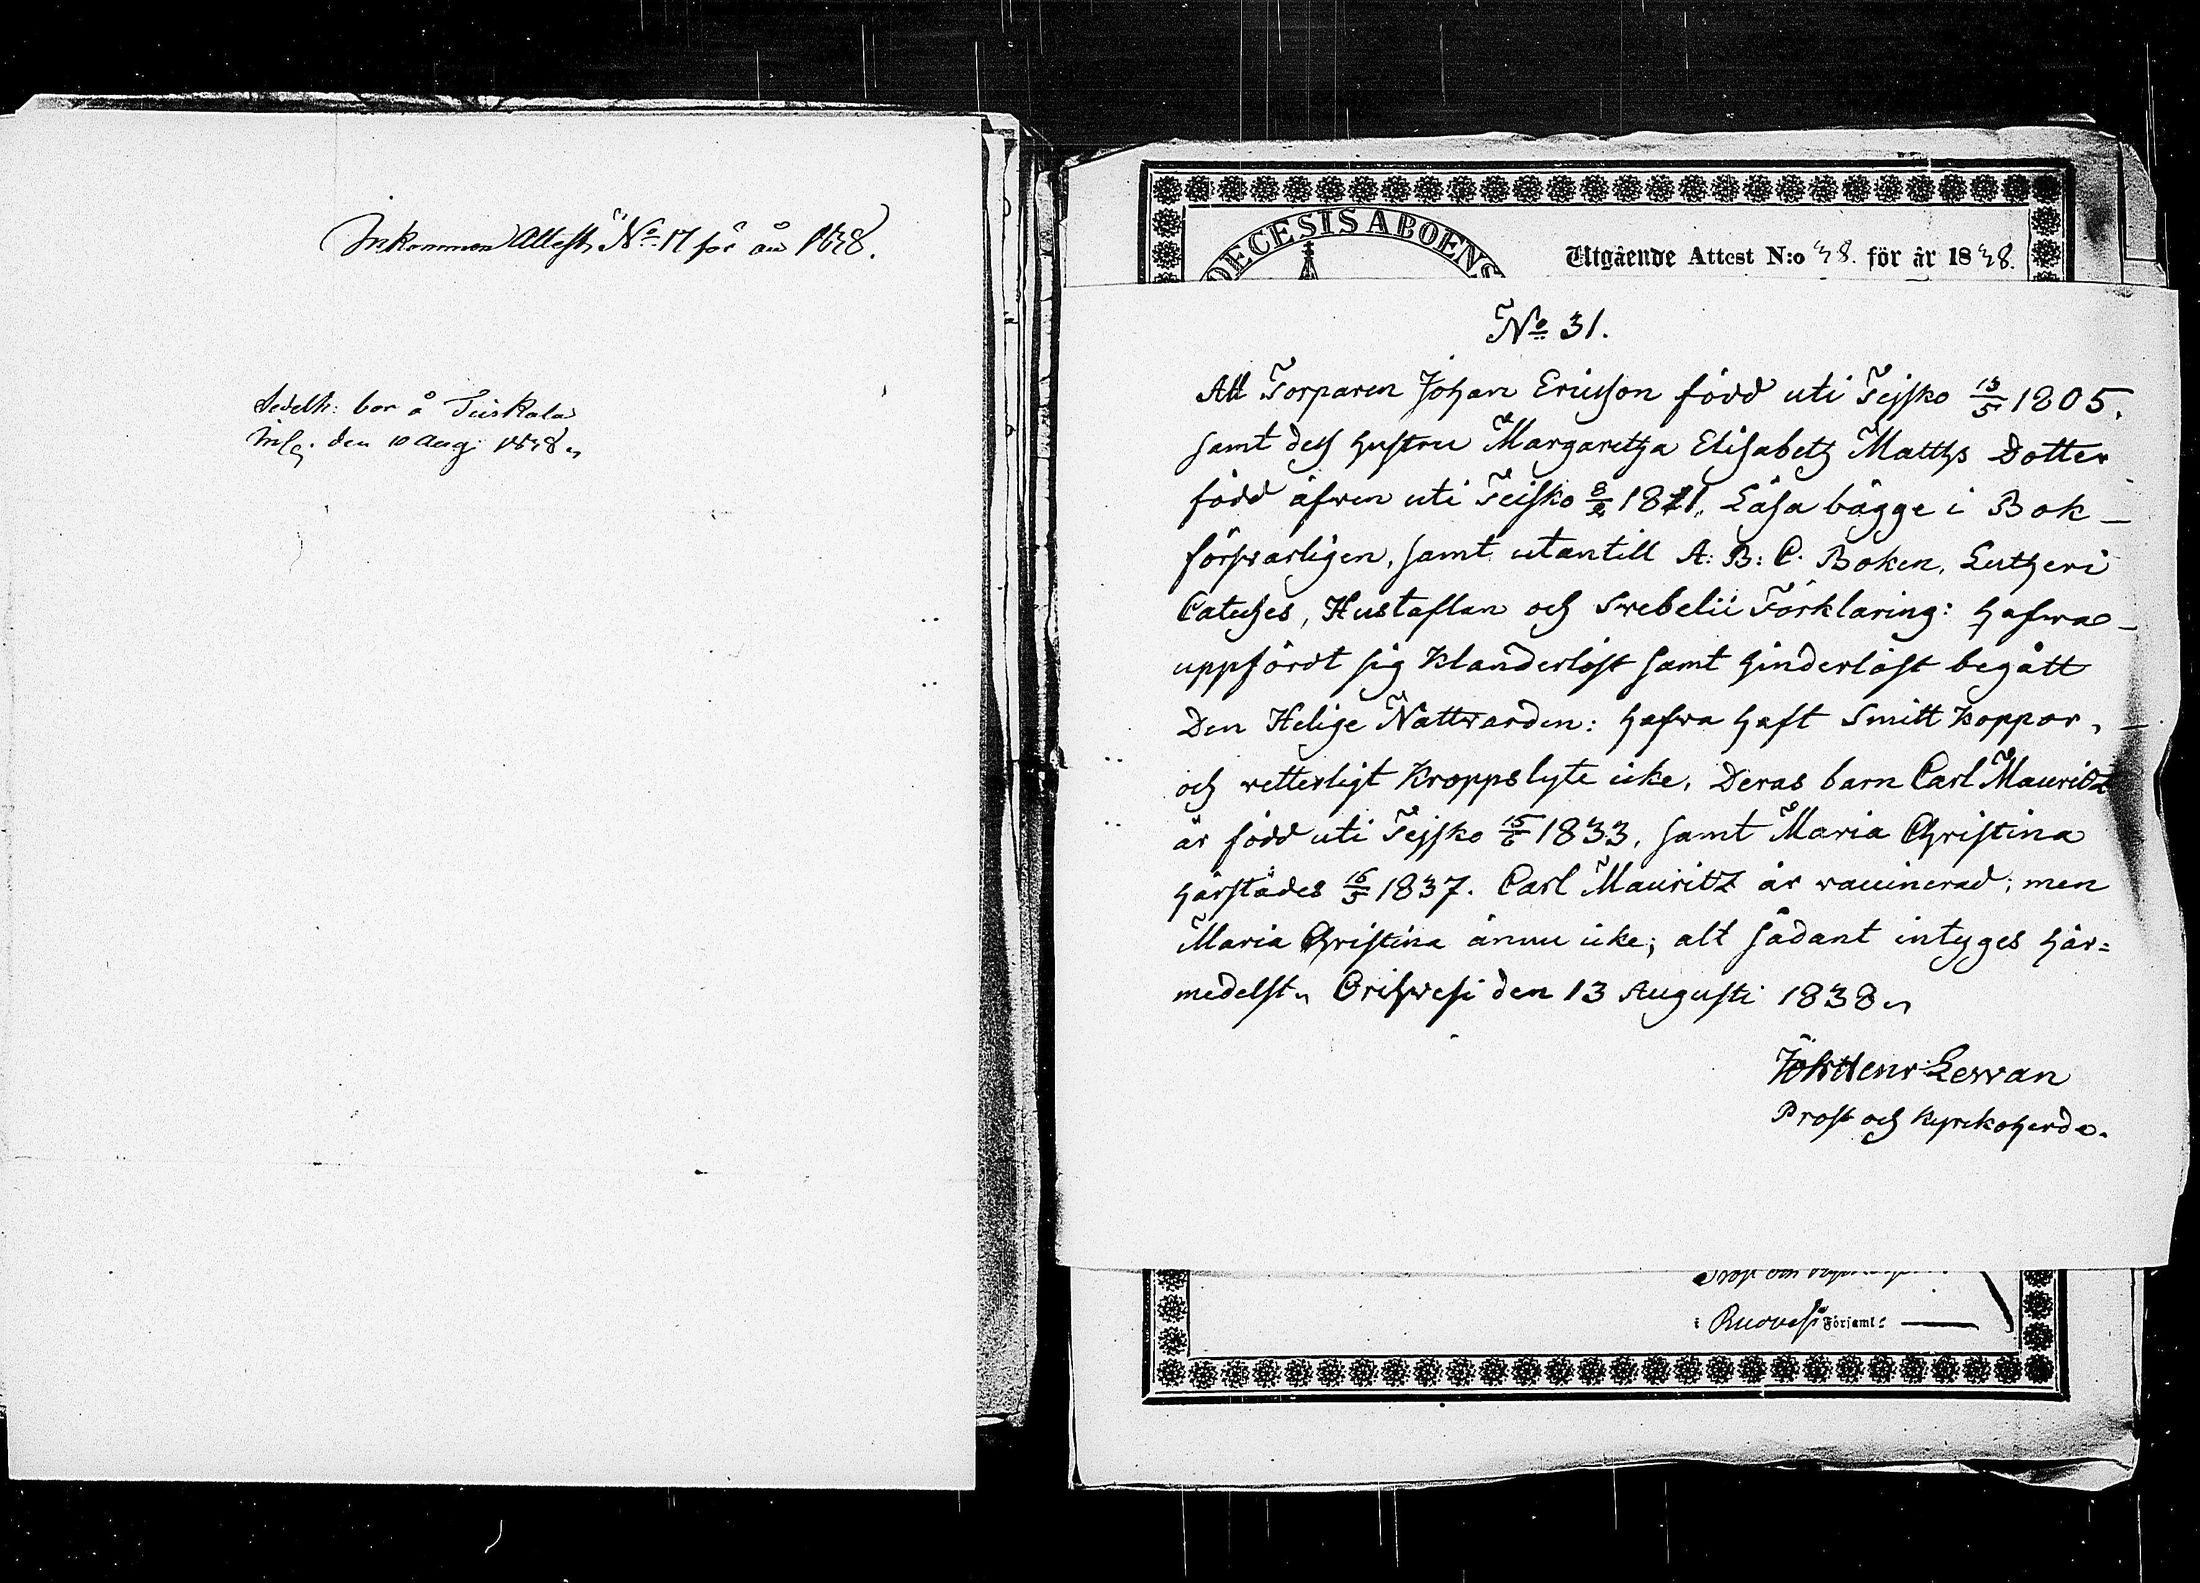 Inkommen Attest, No 17 för år 1838.
Sedelh: bor å Tuiskala
den 10 Aug: 1838
DECESIS ABOENS
Utgående Attest N:o 38. för år 1838.
No 31.
Att Torparen Johan Ericsson född uti Tejsko 13/5 1805,
samt dess hustru Margaretha Elisabeth Matths Dotter
född äfwen uti Teisko 8/2 1811, Läsa bägge i Bok
förswarligen, samt utantill A: B: C. Boken, Lutheri
Cateches, Hustaflan och Swebelii Förklaring: hafwa
uppfördt sig klanderlöst samt hinderlöst begått
Den Helige Nattwarden: hafwa haft Smitt koppor,
och wetterligt Kroppslyte icke, Deras barn Carl Mauritz
är född uti Tejsko 15/6 1833, samt Maria Christina
härstädes 16/5 1837. Carl Mauritz är vaccinerad; men
Maria Christina ännu icke; alt sådant intyges här=
medelst. Orihwesi den 13 Augusti 1838
Joh: Henr: Lewan
Prost och Kyrckoherde.
i Ruovesi Församl: